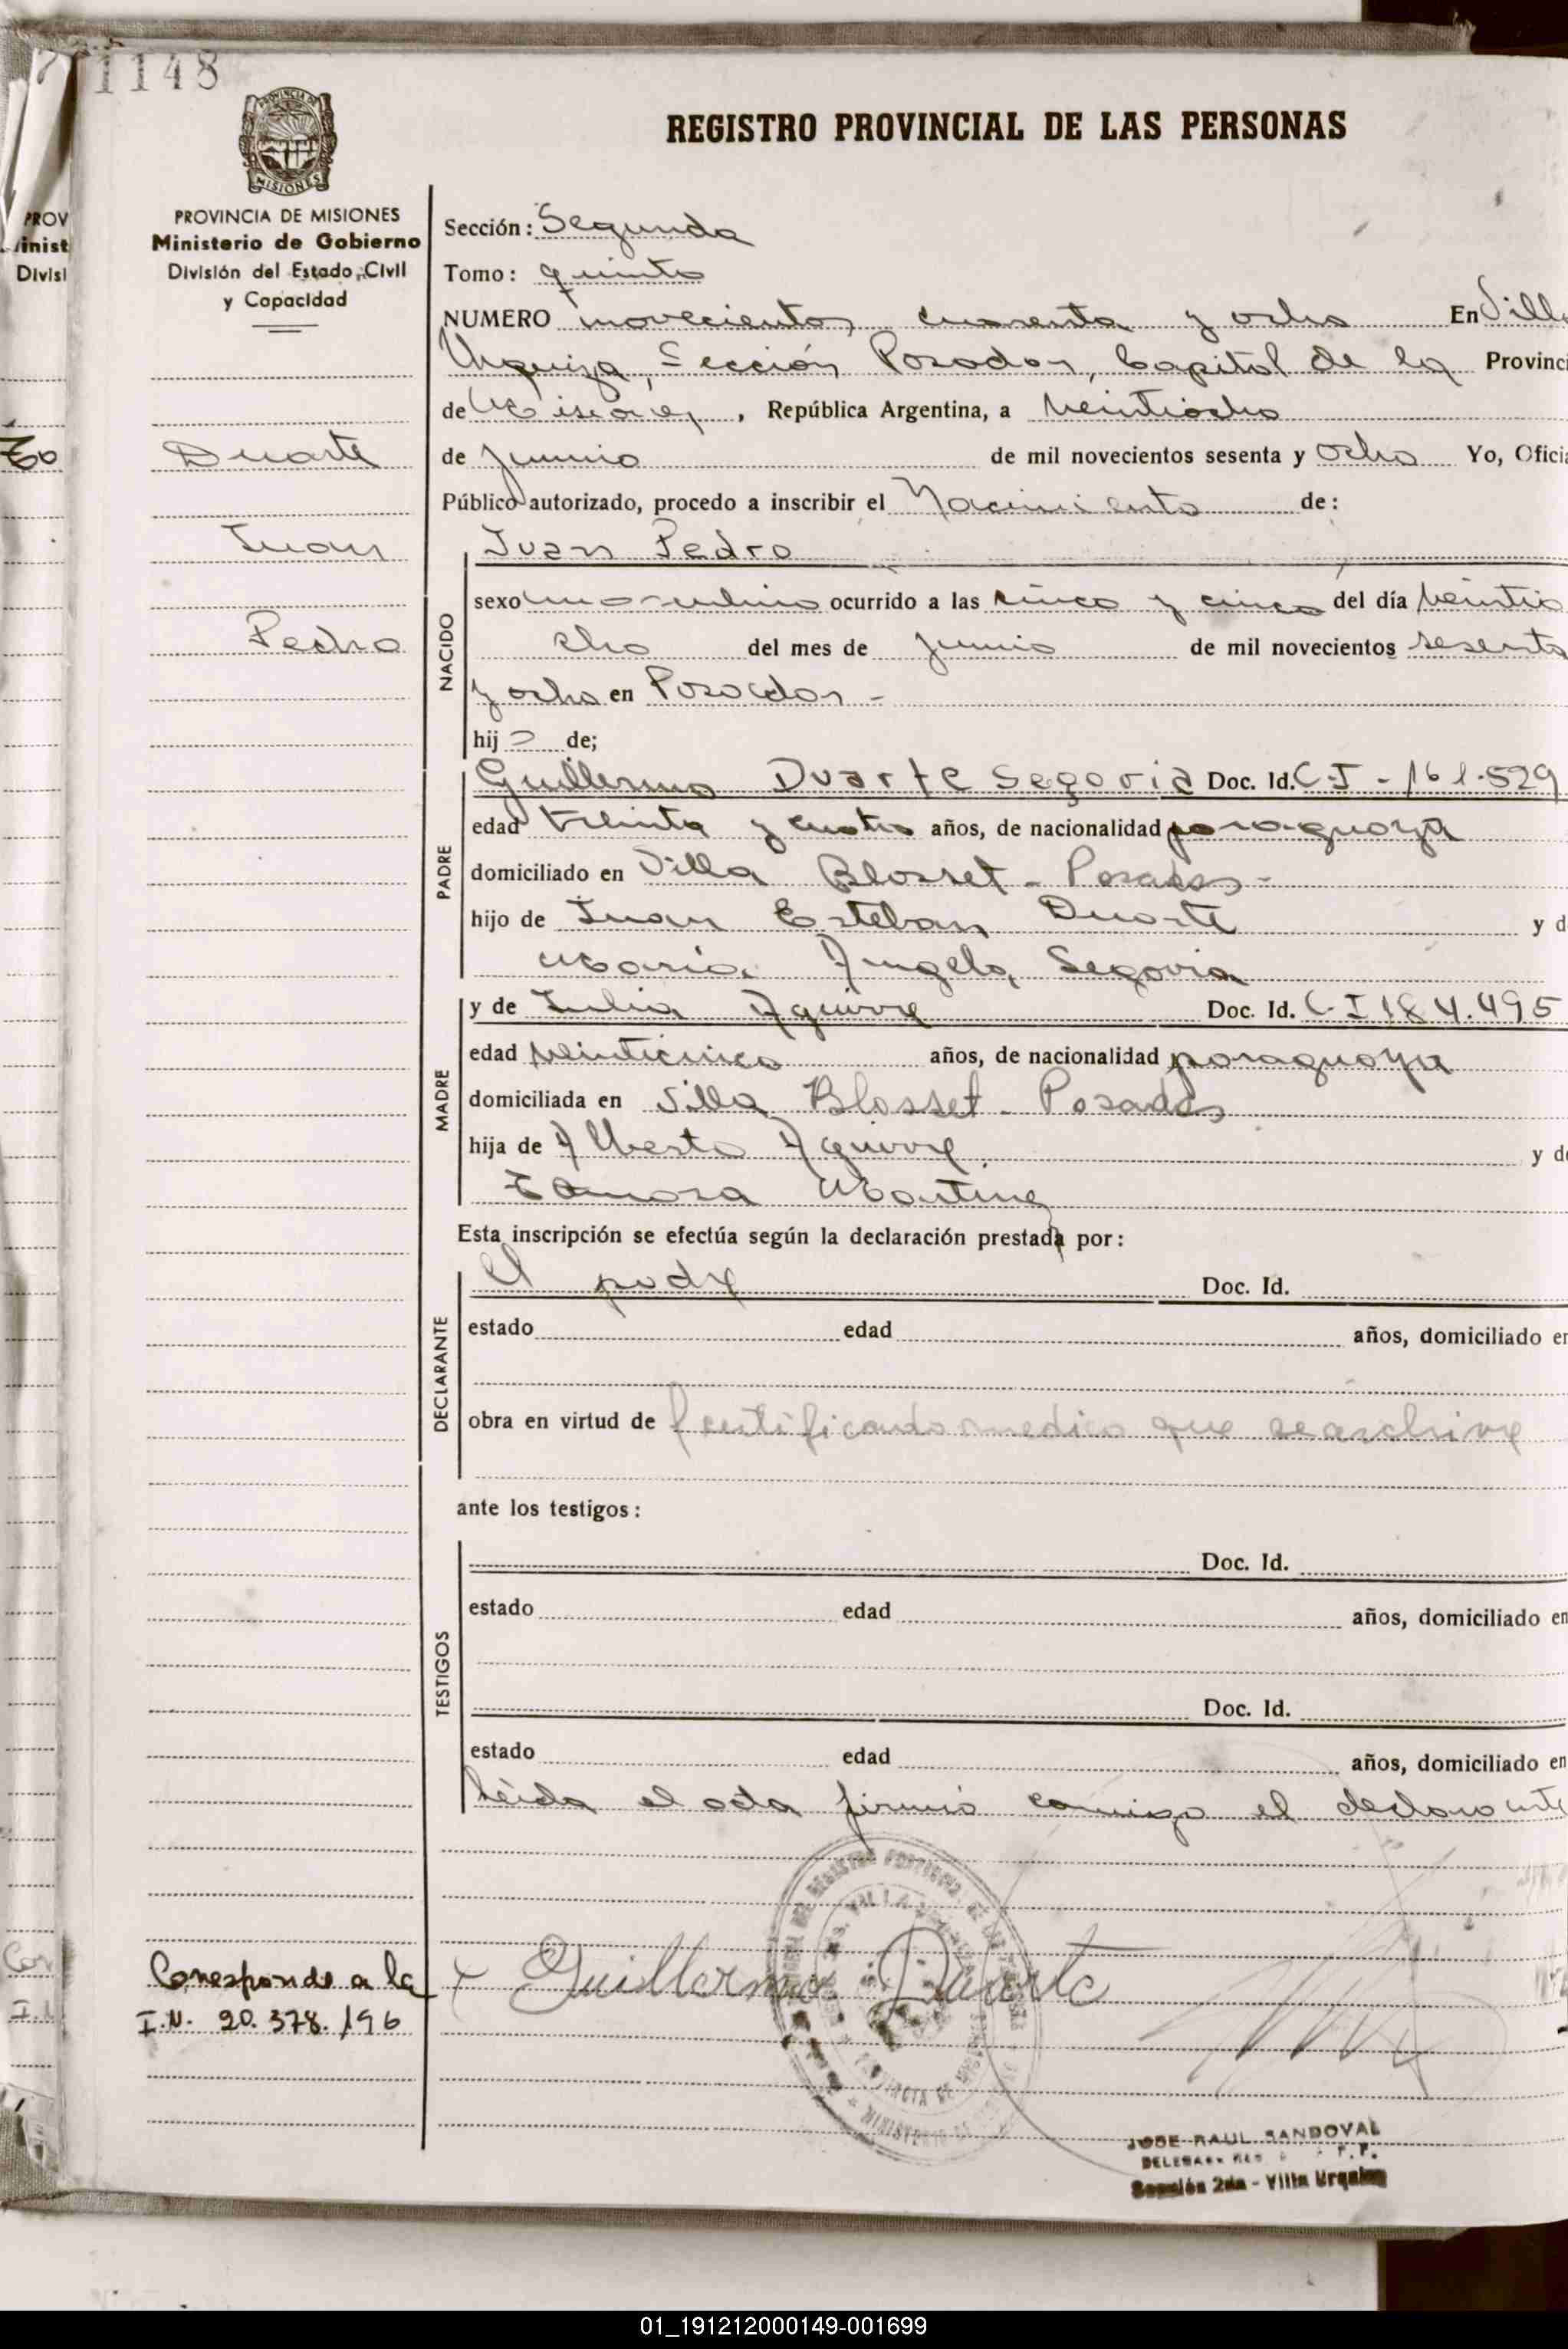 1148
REGISTRO PROVINCIAL DE LAS PERSONAS
PROVINCIA DE MISIONES
Ministerio de Gobierno
División del Estado Civil
y Capacidad
Duarte
Juan
Pedro
Sección: Segunda
Tomo: quinto
NUMERO novecientos cuarenta y ocho En Villa
Urquiza, Sección Posadas, Capital de la Provinci
de Misiones, República Argentina, a veintiocho
de Junio de mil novecientos sesenta y ocho Yo, Oficia
Público autorizado, procedo a inscribir el Nacimiento de:
Juan Pedro
NACIDO
sexo masculino ocurrido a las cinco y cinco del día veintio
cho del mes de junio de mil novecientos sesenta
y ocho en Posadas -
hijo de;
PADRE
Guillermo Duarte Segovia Doc. Id. C-I - 161.529
edad treinta y cuatro años, de nacionalidad paraguaya
domiciliado en Villa Blosset - Posadas -
hijo de Juan Esteban Duarte y d
María Angela Segovia
MADRE
y de Julia Aguirre Doc. Id. C-I 184.495
edad veinticinco años, de nacionalidad paraguaya
domiciliada en Villa Blosset - Posadas
hija de Alberto Aguirre y de
Martinez
Esta inscripción se efectúa según la declaración prestada por:
DECLARANTE
El padre Doc. Id.
estado edad años, domiciliado en
obra en virtud de certificado medico que se archive
ante los testigos:
TESTIGOS
Doc. Id.
estado edad años, domiciliado en
Doc. Id.
estado edad años, domiciliado en
leída el acta firmó conmigo el declarante
Guillermo Duarte
Corresponde a la
I.N. 20.378.196
JOSE RAUL SANDOVAL
Sección 2da - Villa Urquiza
01_191212000149-001699